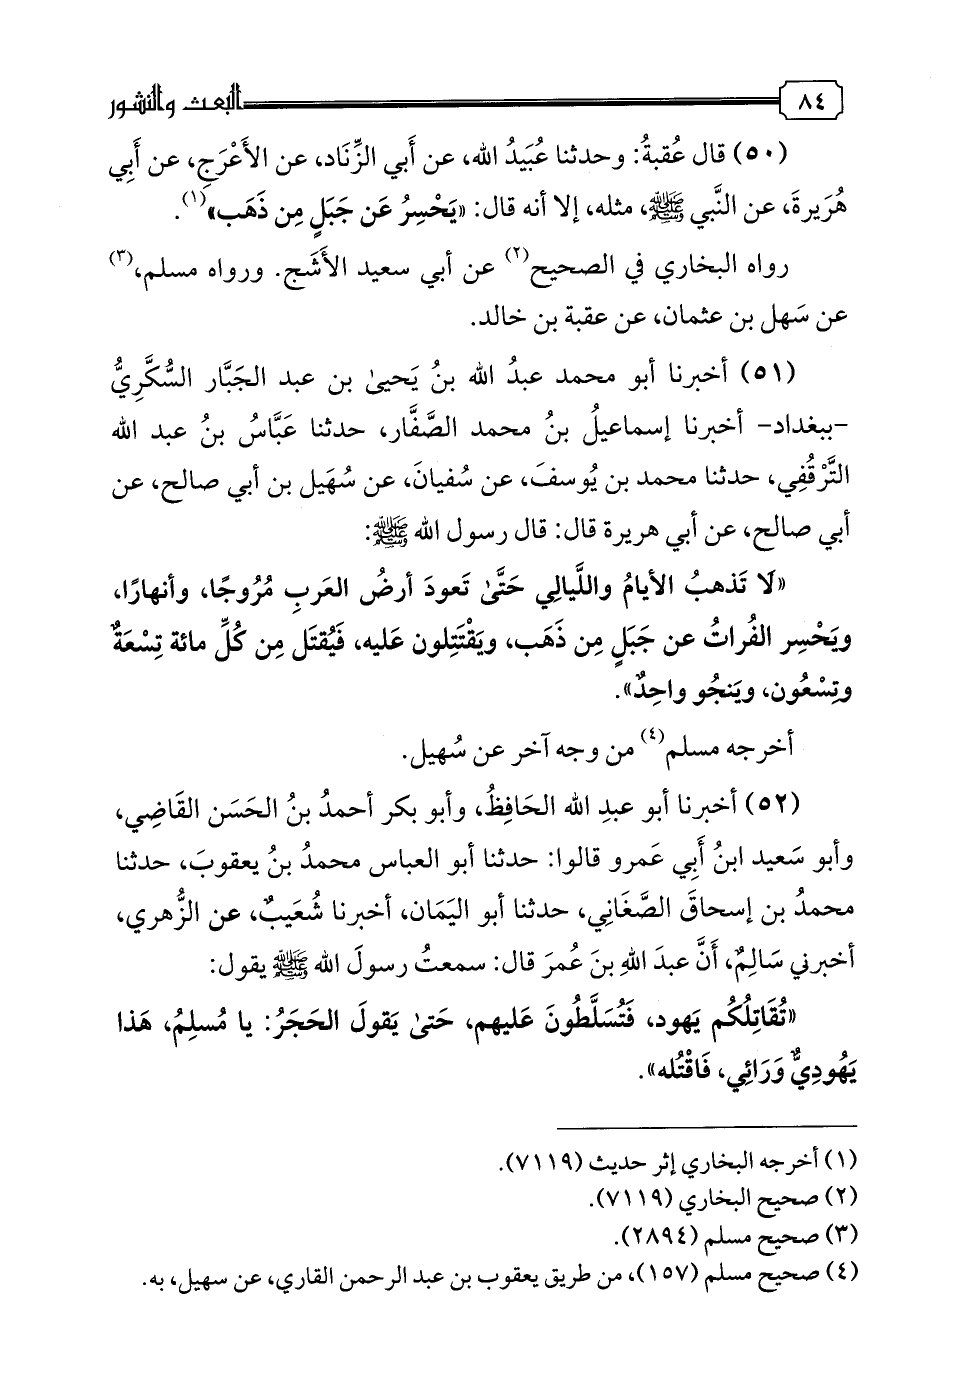 ٨٤ البعث والنشور
(٥٠) قال عُقبةُ: وحدثنا عُبَيدُ الله، عن أَبي الزِّنَاد، عن الأَعْرَجِ، عن أَبِي
هُرَيرةَ، عن النَّبي ﷺ، مثله، إلا أنه قال: «يَحْسِرُ عَن جَبَلٍ مِن ذَهَب»(١).
رواه البخاري في الصحيح(٢) عن أبي سعيد الأَشَج. ورواه مسلم،(٣)
عن سَهل بن عثمان، عن عقبة بن خالد.
(٥١) أخبرنا أبو محمد عبدُ الله بنُ يَحيىٰ بن عبد الجَبَّار السُّكَّرِيُّ
-ببغداد- أخبرنا إسماعيلُ بنُ محمد الصَّفَّار، حدثنا عَبَّاسُ بنُ عبد الله
التَّرْقُفِي، حدثنا محمد بن يُوسفَ، عن سُفيانَ، عن سُهَيل بن أبي صالح، عن
أبي صالح، عن أبي هريرة قال: قال رسول الله ﷺ:
«لَا تَذهبُ الأيامُ واللَّيالِي حَتَّىٰ تَعودَ أرضُ العَربِ مُرُوجًا، وأنهارًا،
ويَحْسِر الفُراتُ عن جَبَلٍ مِن ذَهَب، ويَقْتَتِلون عَليه، فَيُقتَل مِن كُلِّ مائة تِسْعَةٌ
وتِسْعُون، ويَنجُو واحِدٌ».
أخرجه مسلم(٤) من وجه آخر عن سُهيل.
(٥٢) أخبرنا أبو عبدِ الله الحَافِظُ، وأبو بكر أحمدُ بنُ الحَسَن القَاضِي،
وأبو سَعيد ابنُ أَبِي عَمرو قالوا: حدثنا أبو العباس محمدُ بنُ يعقوبَ، حدثنا
محمدُ بن إسحاقَ الصَّغَانِي، حدثنا أبو اليَمَان، أخبرنا شُعَيبٌ، عن الزُّهري،
أخبرني سَالِمٌ، أَنَّ عبدَ اللهِ بنَ عُمَرَ قال: سمعتُ رسولَ الله ﷺ يقول:
«تُقَاتِلُكُم يَهود، فَتُسَلَّطُونَ عَليهم، حَتىٰ يَقولَ الحَجَرُ: يا مُسلِمُ، هَذا
يَهُودِيٌّ وَرَائِي، فَاقْتُله».
(١) أخرجه البخاري إثر حديث (٧١١٩).
(٢) صحيح البخاري (٧١١٩).
(٣) صحيح مسلم (٢٨٩٤).
(٤) صحيح مسلم (١٥٧)، من طريق يعقوب بن عبد الرحمن القاري، عن سهيل، به.